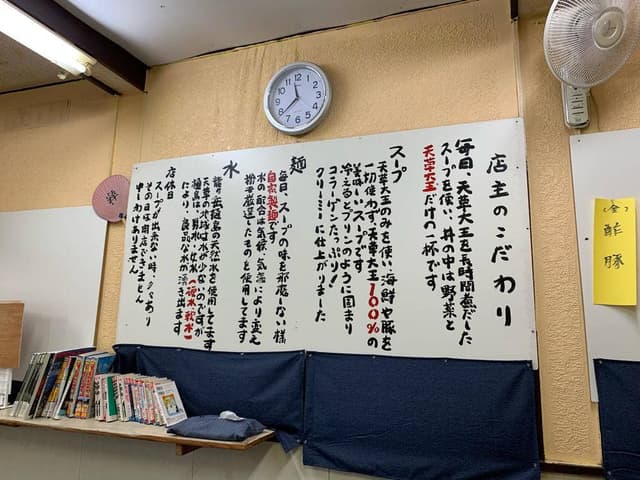 店主のこだわり
毎日、天草大王を長時間煮だした
スープを使い、丼の中は野菜と
天草大王だけの一杯です。
スープ
天草大王のみを使い、海鮮や豚を
一切使わず、天草大王100%の
美味しいスープです
冷えるとプリンのように固まり
コラーゲンたっぷり!
クリーミーに仕上がりました
麺
毎日、スープの味を邪魔しない様
自家製麺です
水の配合は気候、気温により変え
粉は厳選したものを使用してます
水
天然水を使用してます
天草の地域は水が少ないのですが
(硬水・軟水)
により、良質な水が湧き出ます
店休日
スープが出来ない時、多々あり
その日は開店できません
申しわけありません
(金)
酢豚